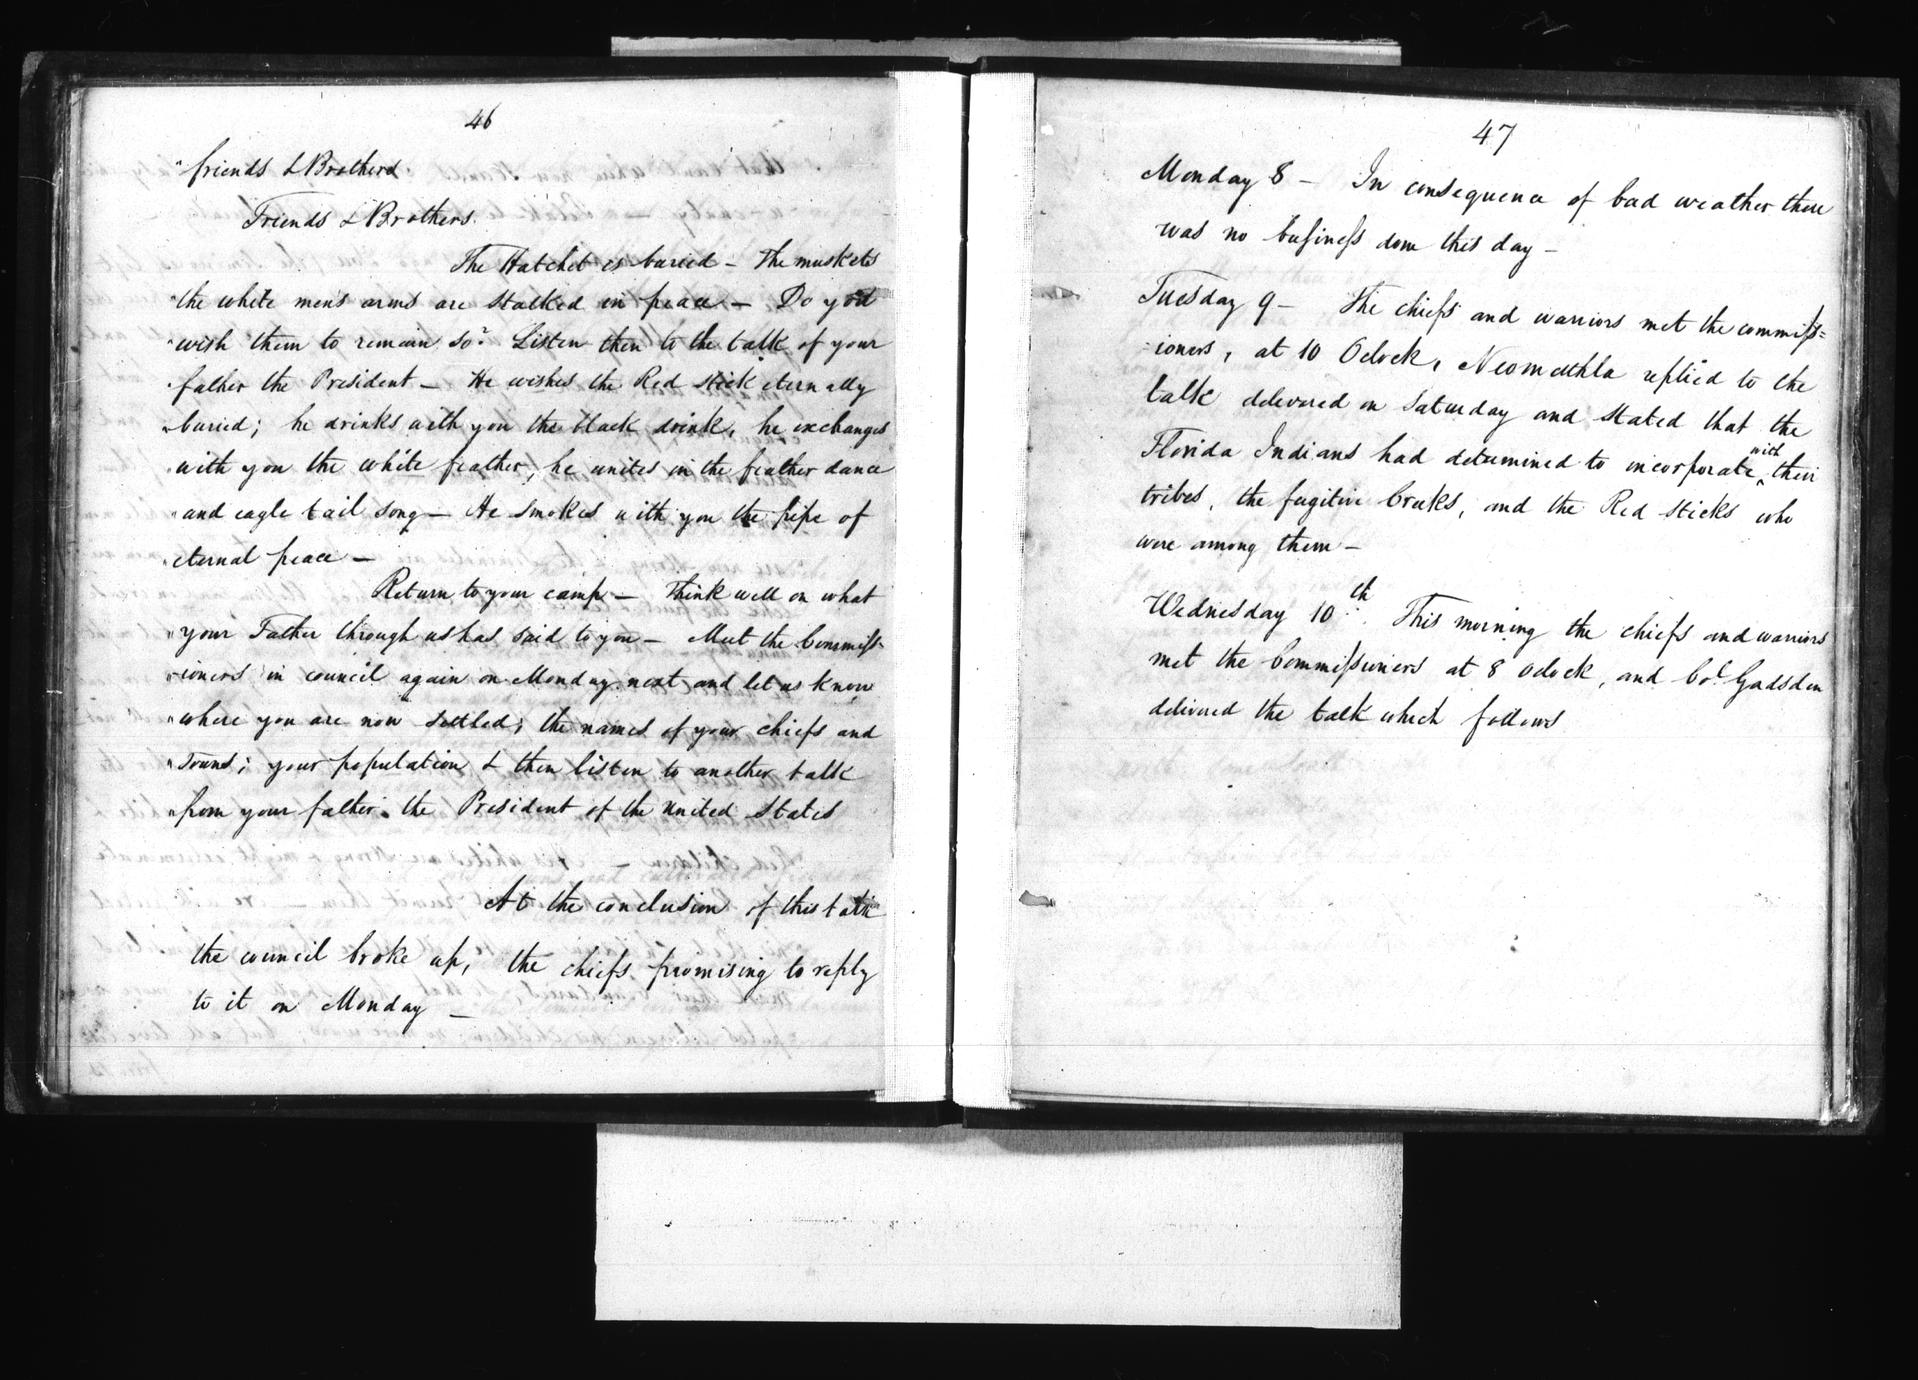 46
"friends & Brothers
Friends & Brothers.
The Hatchet is buried - The muskets
"the white men's arms are stacked in peace - Do you
"wish them to remain so? Listen then to the talk of your
"father the President - He wishes the Red stick eternally
"buried; he drinks with you the black drink, he exchanges
"with you the white feather, he unites in the feather dance
"and eagle tail song - He smokes with you the pipe of
"eternal peace -
Return to your camp - Think well on what
"your Father through us has said to you - Meet the Commiss-
"ioners in council again on Monday next and let us know
"where you are now settled; the names of your chiefs and
"Towns; your population & then listen to another talk
"from your father the President of the United States
At the conclusion of this talk
the council broke up, the chiefs promising to reply
to it on Monday -
47
Monday 8 - In consequence of bad weather there
was no business done this day -
Tuesday 9 - The chiefs and warriors met the commiss=
-ioners, at 10 Oclock, Neomathla replied to the
talk delivered on Saturday and stated that the
Florida Indians had determined to incorporate with their
tribes, the fugitive Creeks, and the Red Sticks who
were among them -
Wednesday 10th. This morning the chiefs and warriors
met the Commissioners at 8 oclock, and Col. Gadsden
delivered the talk which follows